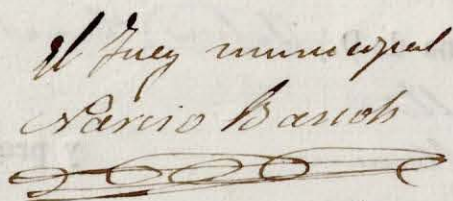 El Juez municipal
Narciso Bosch